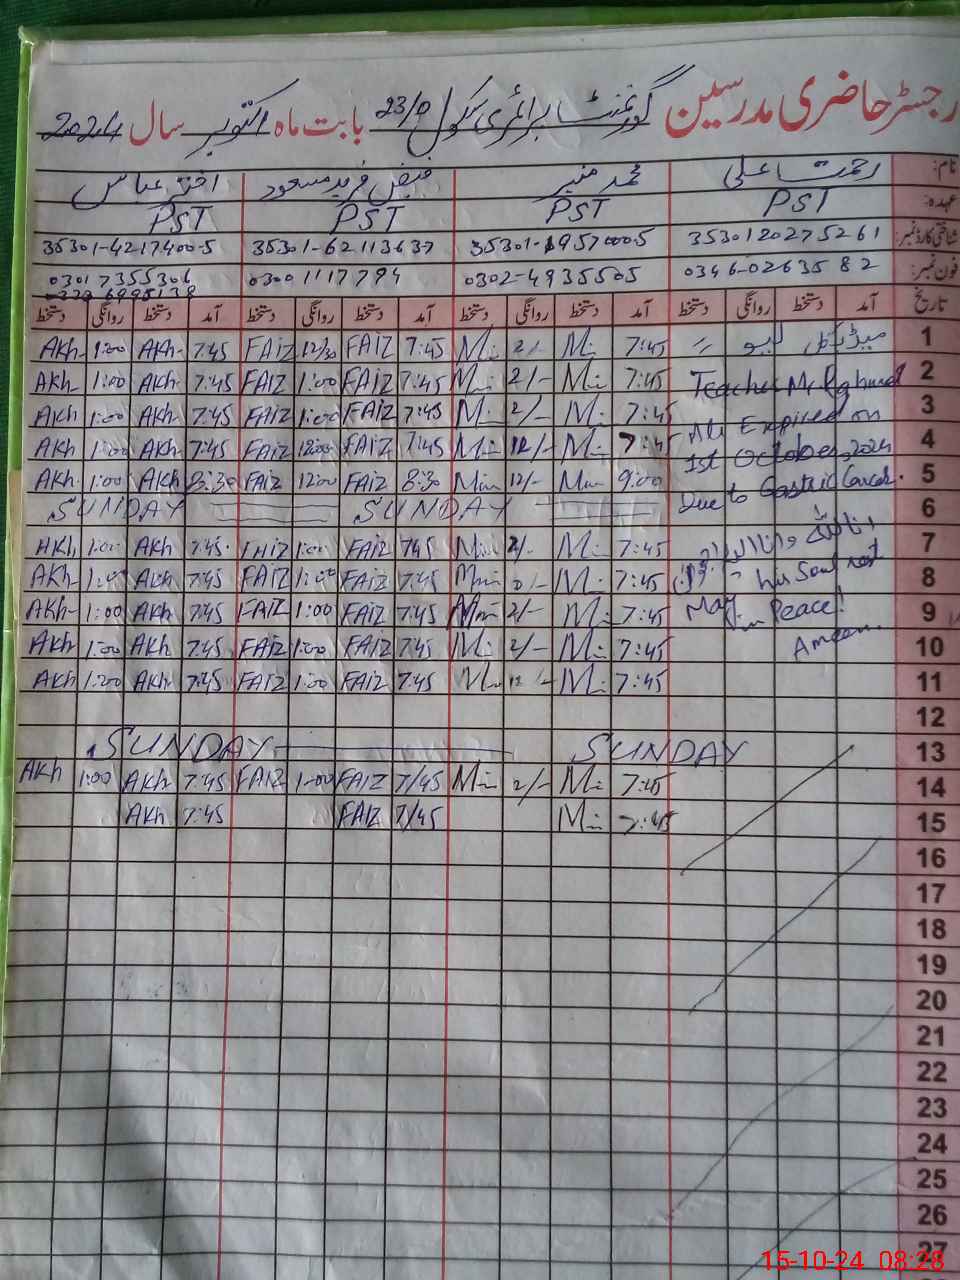 رجسٹر حاضری مدرسین گورنمنٹ پرائمری سکول 23/D بابت ماہ اکتوبر سال 2024
نام: رحمت علی محمد منیر فیض فرید مسعود اختر عباس
عہدہ: PST PST PST PST
شناختی کارڈ نمبر: 3530120275261 35301-1957000-5 35301-6211363-7 35301-4217400-5
فون نمبر: 0346-0263582 0302-4935505 03001117794 03017355306
تاریخ آمد دستخط روانگی دستخط آمد دستخط روانگی دستخط آمد دستخط روانگی دستخط آمد دستخط روانگی دستخط
1 میڈیکل لیو 7:45 2/- 7:45 FAIZ 12/30 FAIZ 7:45 AKh 1:00 AKh
2 Teacher Mr Rahmat 7:45 2/- 7:45 FAIZ 1:00 FAIZ 7:45 AKh 1:00 AKh
3 Ali Expired on 7:45 2/- 7:45 FAIZ 1:00 FAIZ 7:45 AKh 1:00 AKh
4 1st October, 2024 7:45 12/- 7:45 FAIZ 12:00 FAIZ 7:45 AKh 1:00 AKh
5 Due to Gastric Cancer. 9:00 12/- 8:30 FAIZ 12:00 FAIZ 8:30 AKh 1:00 AKh
6 SUNDAY SUNDAY
7 انا للہ وانا الیہ راجعون 7:45 2/- 7:45 FAIZ 1:00 FAIZ 7:45 AKh 1:00 AKh
8 his Soul rest 7:45 7:45 FAIZ 1:00 FAIZ 7:45 AKh 1:00 AKh
9 May in Peace! 7:45 2/- 7:45 FAIZ 1:00 FAIZ 7:45 AKh 1:00 AKh
10 Ameen. 7:45 2/- 7:45 FAIZ 1:00 FAIZ 7:45 AKh 1:00 AKh
11 7:45 12/- 7:45 FAIZ 1:00 FAIZ 7:45 AKh 1:00 AKh
12
13 SUNDAY SUNDAY
14 7:45 2/- 7/45 FAIZ 1:00 FAIZ 7:45 AKh 1:00 AKh
15 7:45 7/45 FAIZ 7:45 AKh
16
17
18
19
20
21
22
23
24
25
26
27
15-10-24 08:28